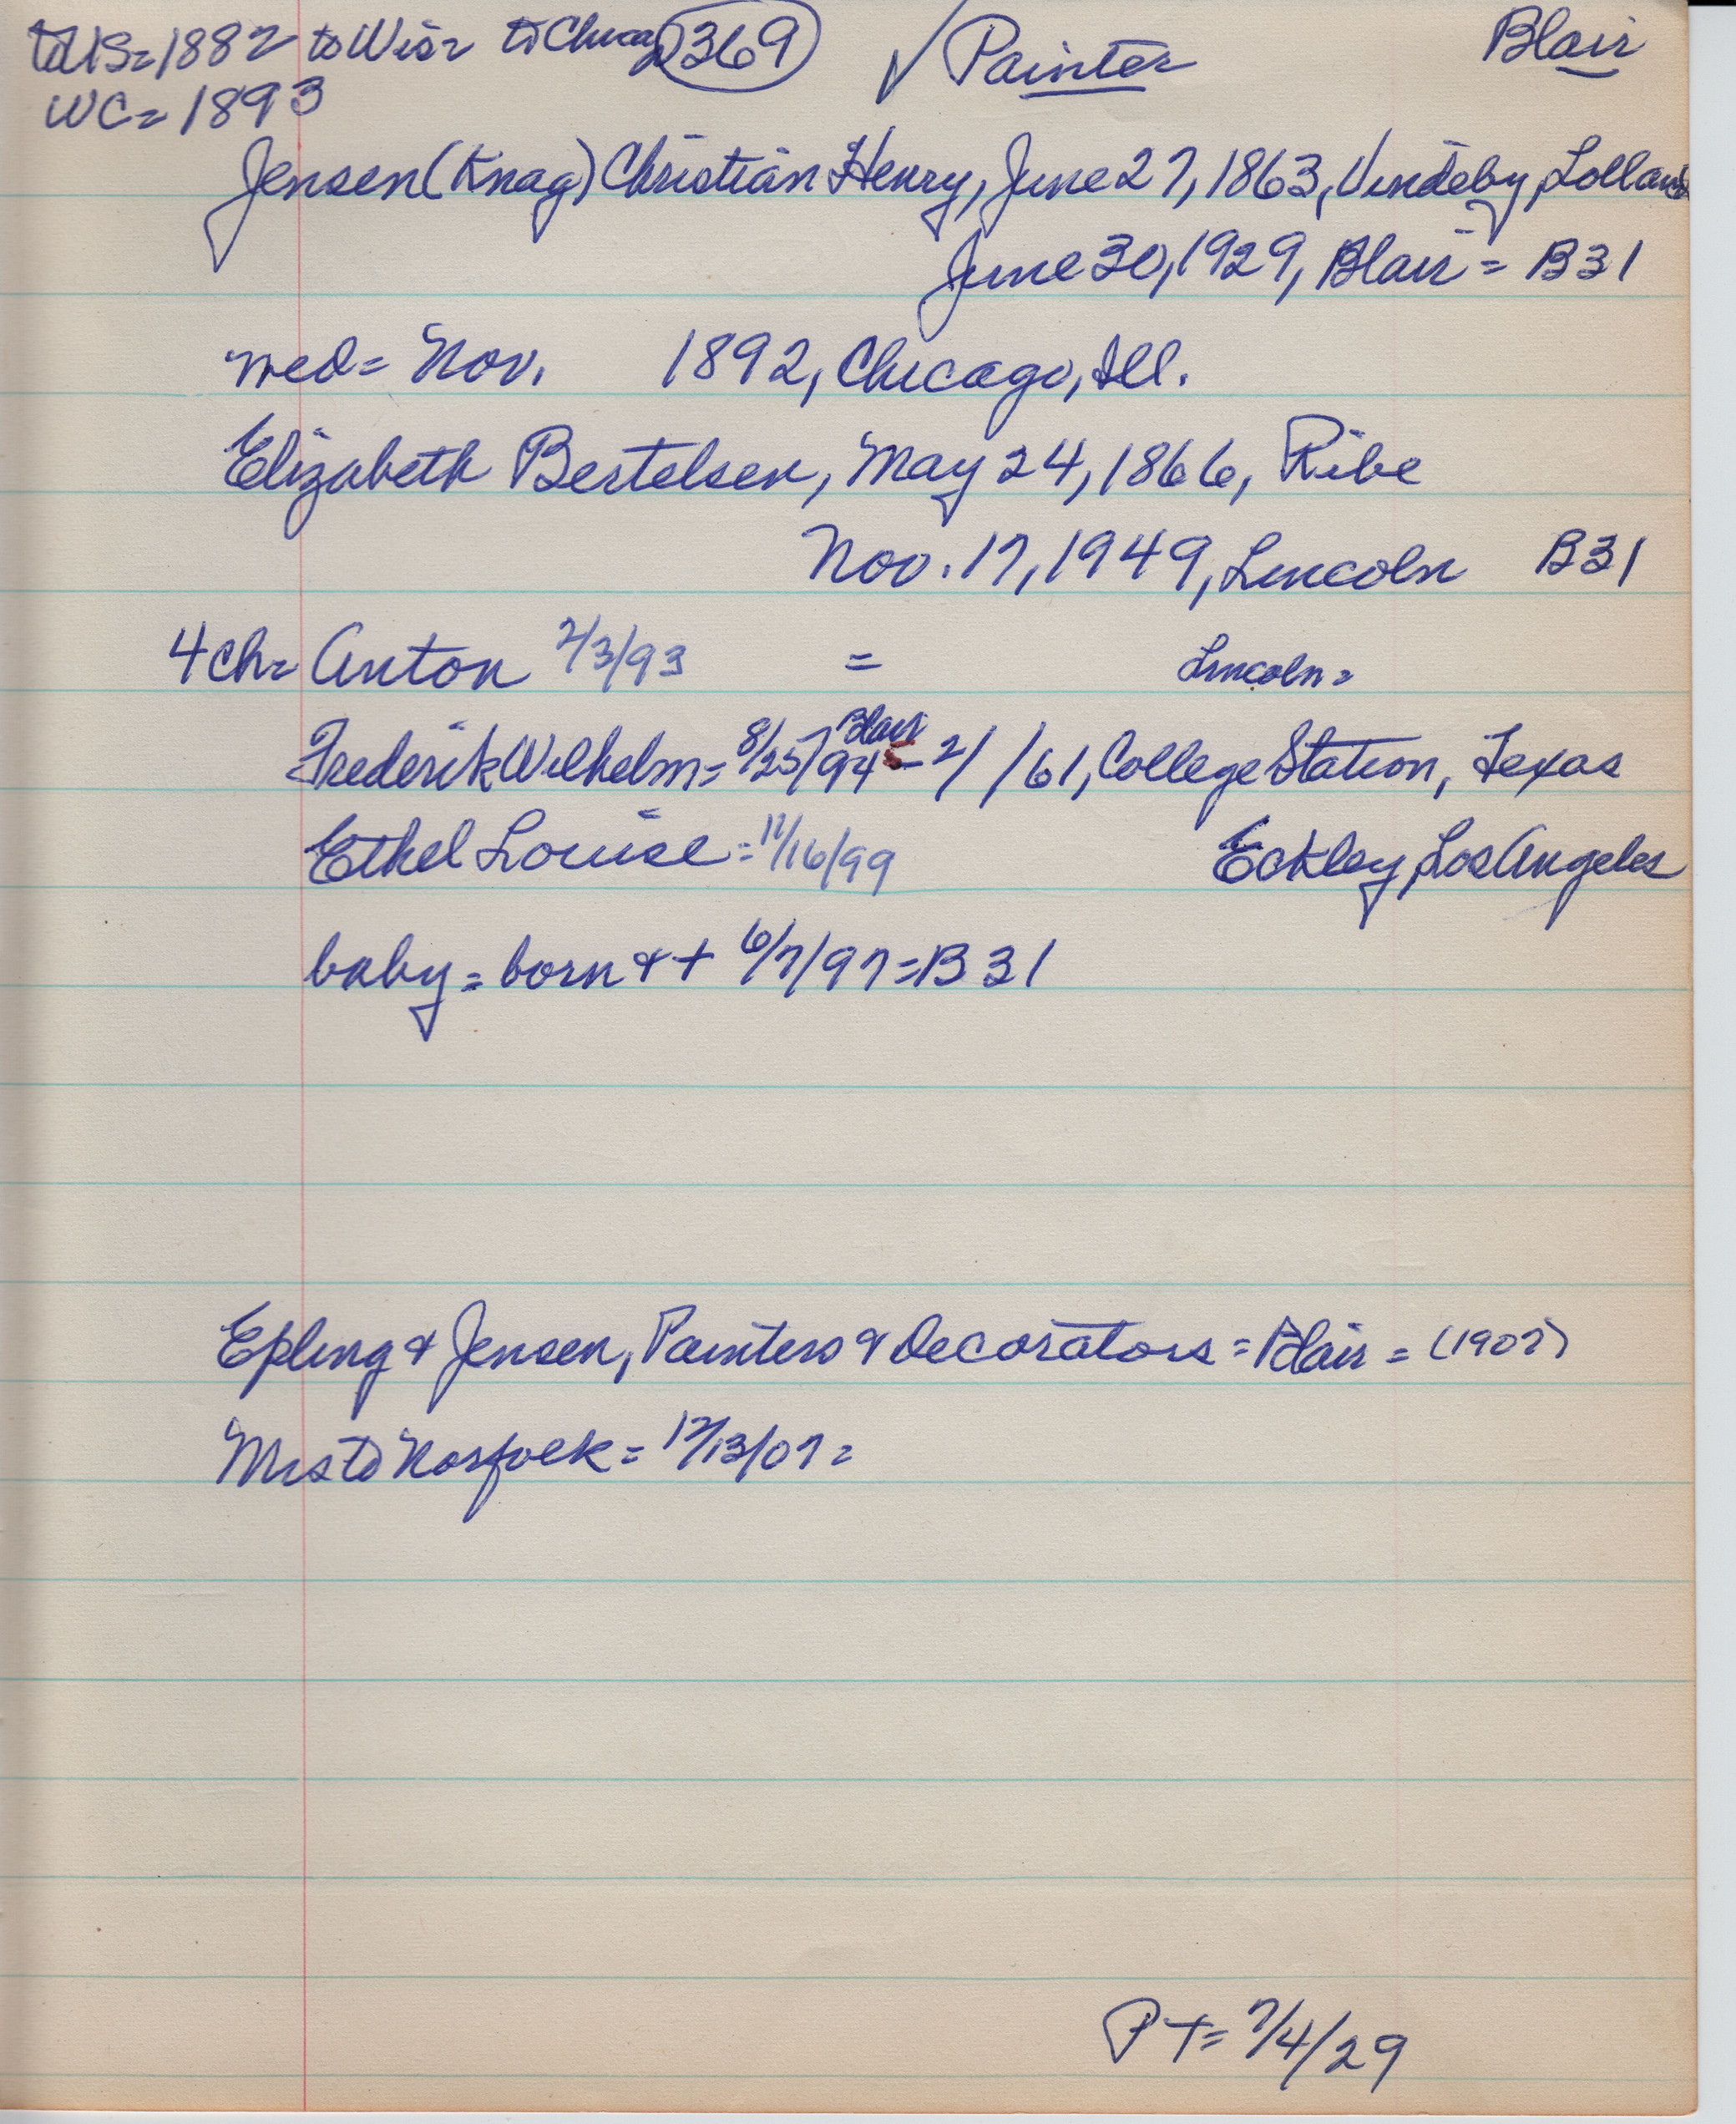 to US = 1882 to Wis = to Chicag 369 ✓ Painter Blair
WC = 1893
Jensen (Knag) Christian Henry, June 27, 1863, Vindeby, Lolland
June 30, 1929, Blair = B31
med = Nov. 1892, Chicago, Ill.
Elizabeth Bertelsen, May 24, 1866, Ribe
Nov. 17, 1949, Lincoln B31
4 ch = Anton 2/3/93 = Lincoln =
Blair
Frederik Wilhelm = 8/25/94 - 2/ /61, College Station, Texas
Ethel Louise = 11/16/99 Eckley, Los Angeles
baby = born & + 6/7/97 = B31
Epling & Jensen, Painters & Decorators = Blair = (1907)
Mrs to Norfolk = 12/13/07 =
PT = 7/4/29